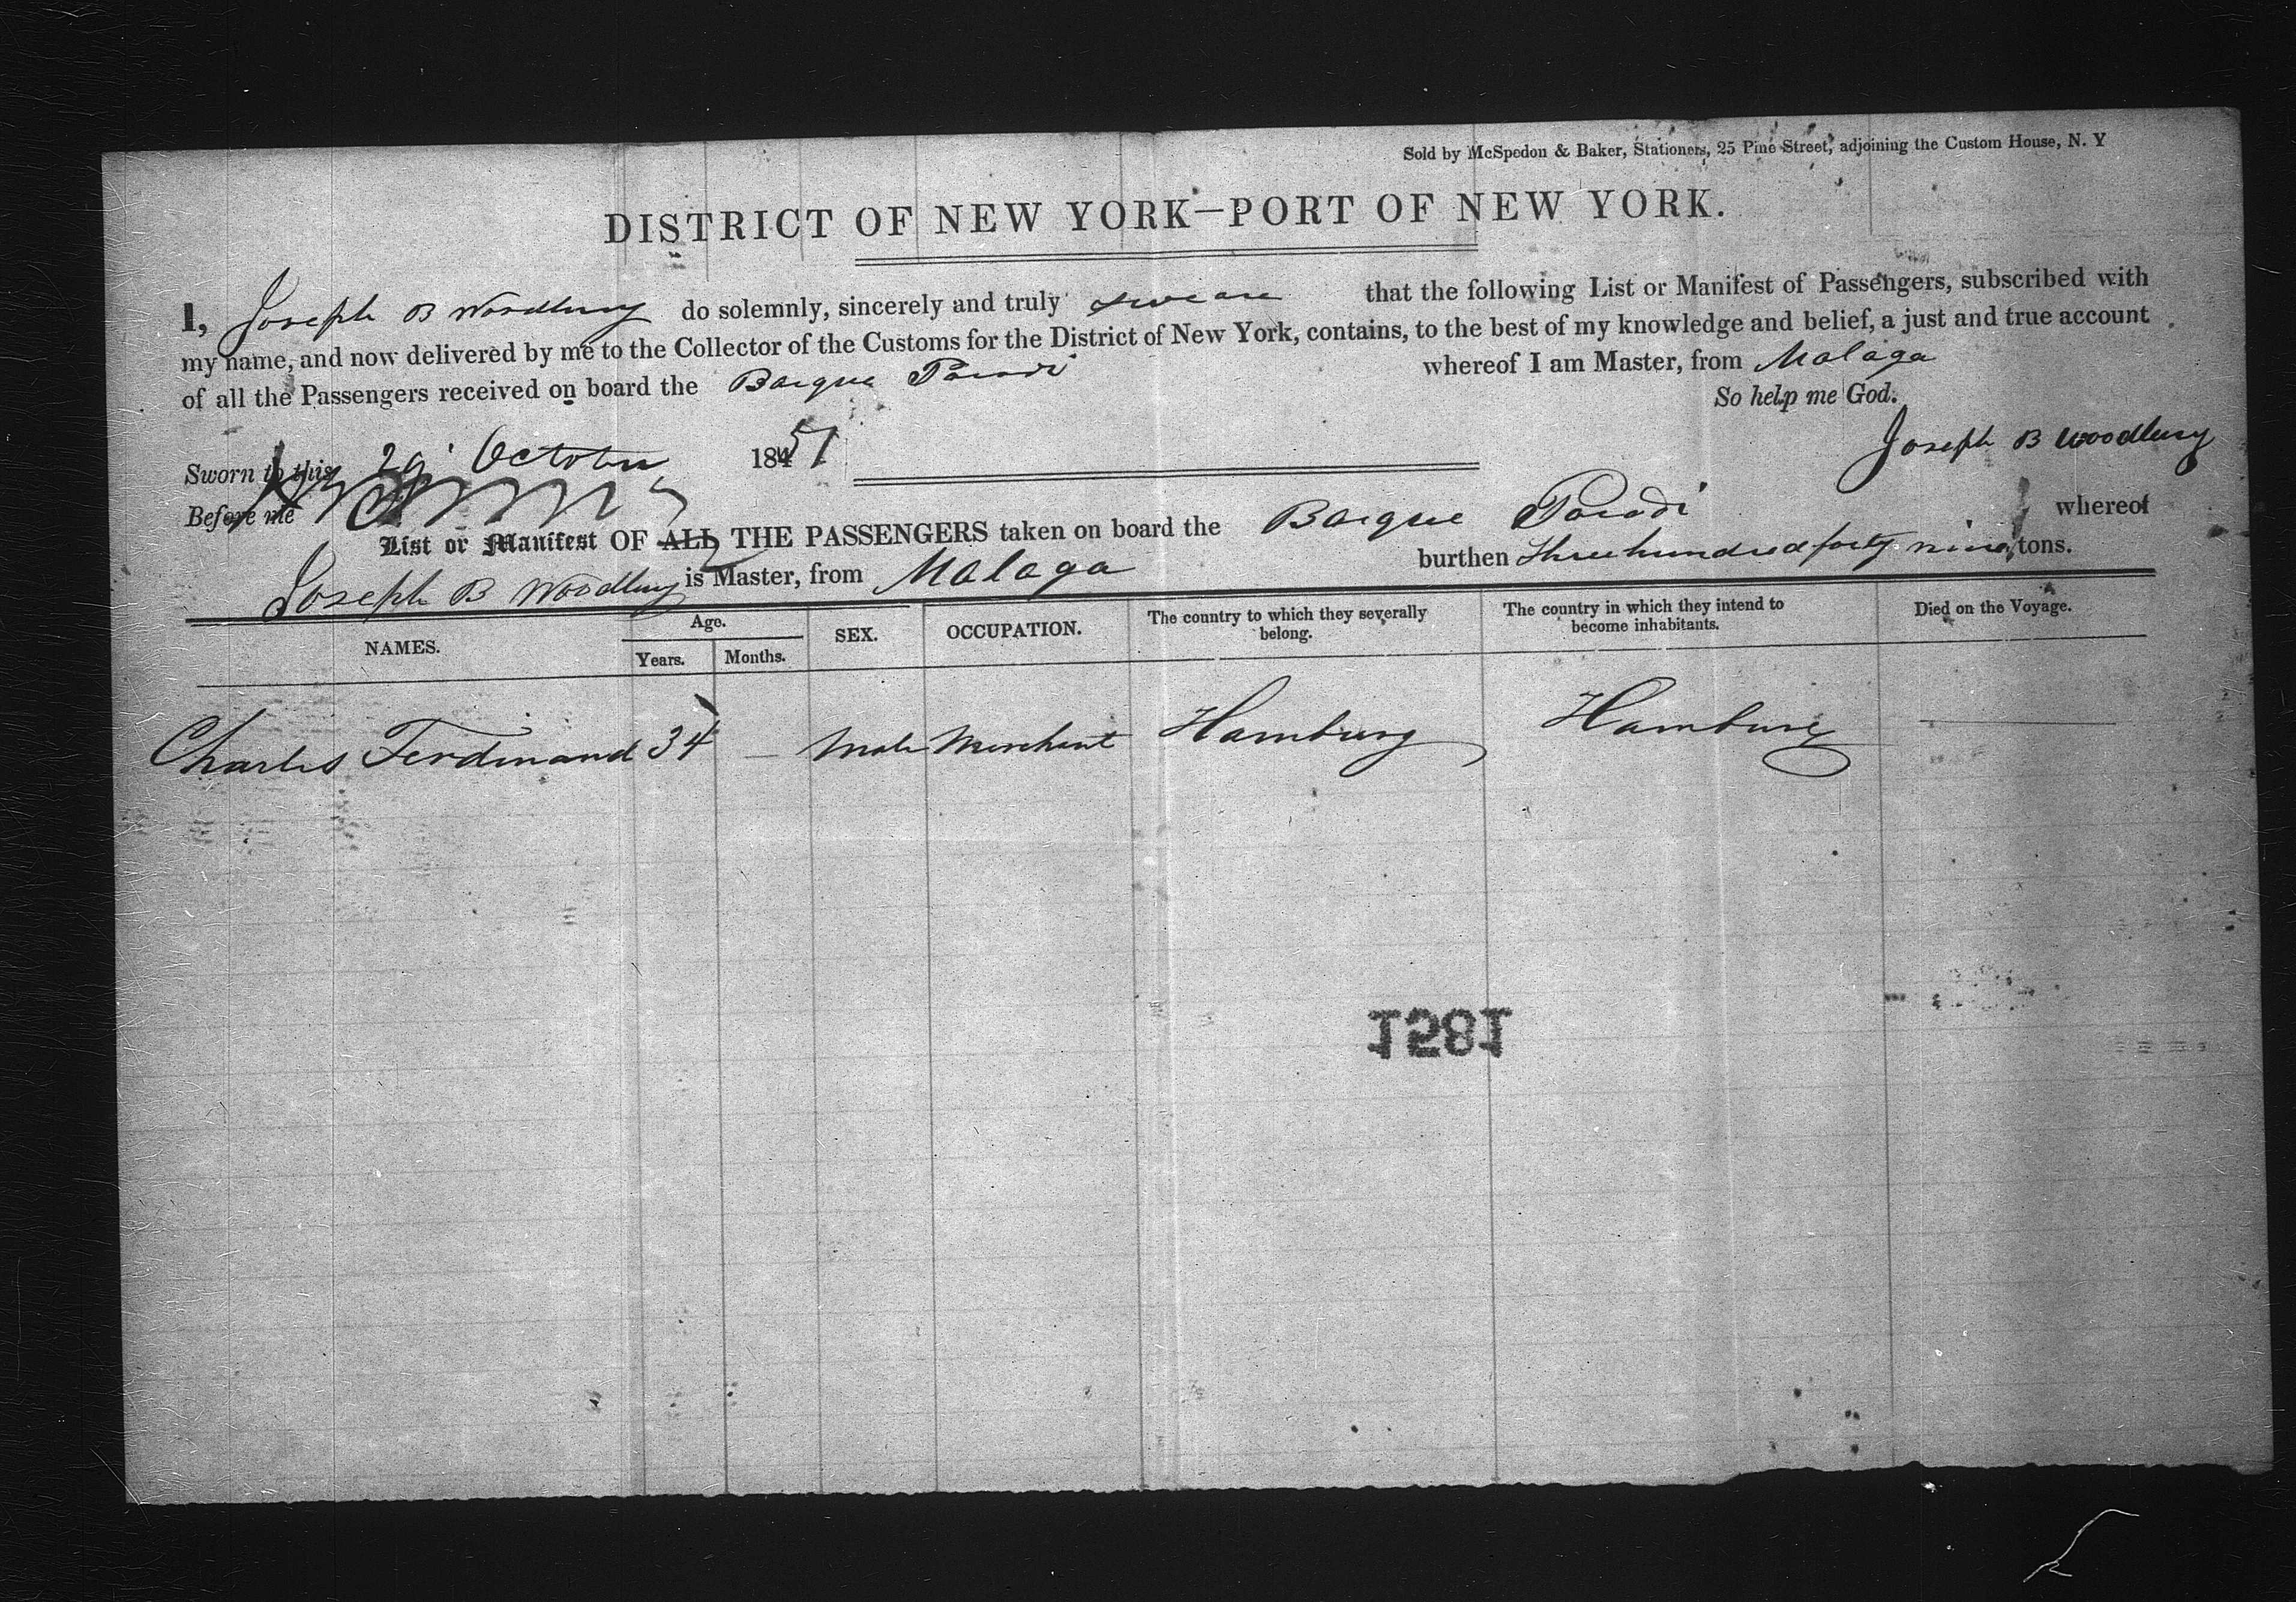 Sold by McSpedon & Baker, Stationers, 25 Pine Street, adjoining the Custom House, N. Y
DISTRICT OF NEW YORK—PORT OF NEW YORK.
I, Joseph B Woodbury do solemnly, sincerely and truly swear that the following List or Manifest of Passengers, subscribed with
my name, and now delivered by me to the Collector of the Customs for the District of New York, contains, to the best of my knowledge and belief, a just and true account
of all the Passengers received on board the Barque Parodi whereof I am Master, from Malaga
So help me God.
Sworn to this 29 October 1851
Joseph B Woodbury
Before me
List or Manifest OF ALL THE PASSENGERS taken on board the Barque Parodi whereof
Joseph B Woodbury is Master, from Malaga burthen three hundred forty nine tons.
NAMES. Age. Years. Months. SEX. OCCUPATION. The country to which they severally belong. The country in which they intend to become inhabitants. Died on the Voyage.
Charles Ferdinand 34 — Male Merchant Hamburg Hamburg
1581